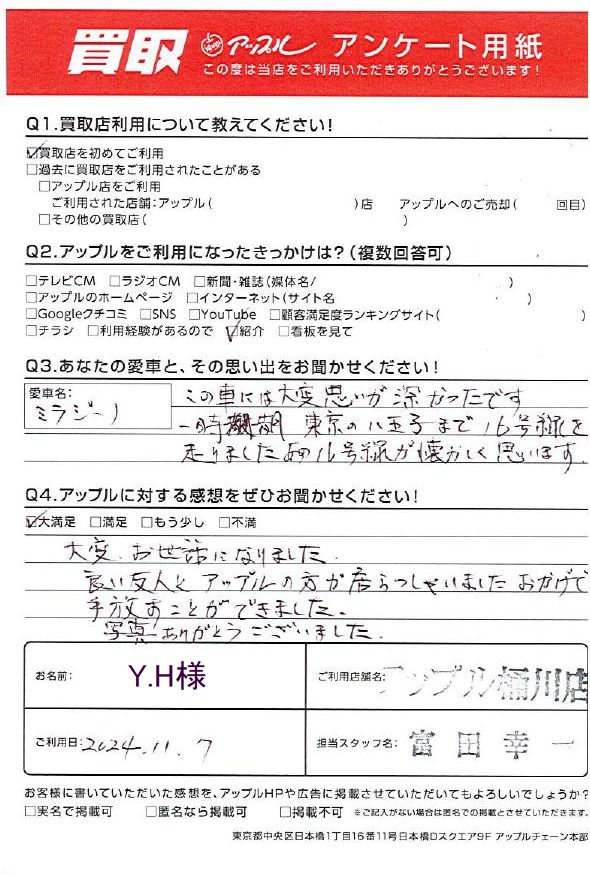 買取 アップル アンケート用紙
この度は当店をご利用いただきありがとうございます!
Q1.買取店利用について教えてください!
☑買取店を初めてご利用
□過去に買取店をご利用されたことがある
□アップル店をご利用
ご利用された店舗:アップル( )店 アップルへのご売却( 回目)
□その他の買取店( )
Q2.アップルをご利用になったきっかけは?(複数回答可)
□テレビCM □ラジオCM □新聞・雑誌(媒体名/ )
□アップルのホームページ □インターネット(サイト名 )
□Googleクチコミ □SNS □YouTube □顧客満足度ランキングサイト( )
□チラシ □利用経験があるので ☑紹介 □看板を見て
Q3.あなたの愛車と、その思い出をお聞かせください!
愛車名:
ミラジーノ
この車には大変思いが深かったです
一時期 東京の八王子まで16号線を
走りました あの16号線が懐かしく思います
Q4.アップルに対する感想をぜひお聞かせください!
☑大満足 □満足 □もう少し □不満
大変、お世話になりました.
良い友人とアップルの方が居らっしゃいました おかげで
手放すことができました.
写真ありがとうございました.
お名前: Y.H様
ご利用店舗名: アップル桶川店
ご利用日: 2024.11.7
担当スタッフ名: 富田幸一
お客様に書いていただいた感想を、アップルHPや広告に掲載させていただいてもよろしいでしょうか?
□実名で掲載可 □匿名なら掲載可 □掲載不可 ※ご記入がない場合は匿名での掲載とさせていただきます。
東京都中央区日本橋1丁目16番11号日本橋Dスクエア9F アップルチェーン本部